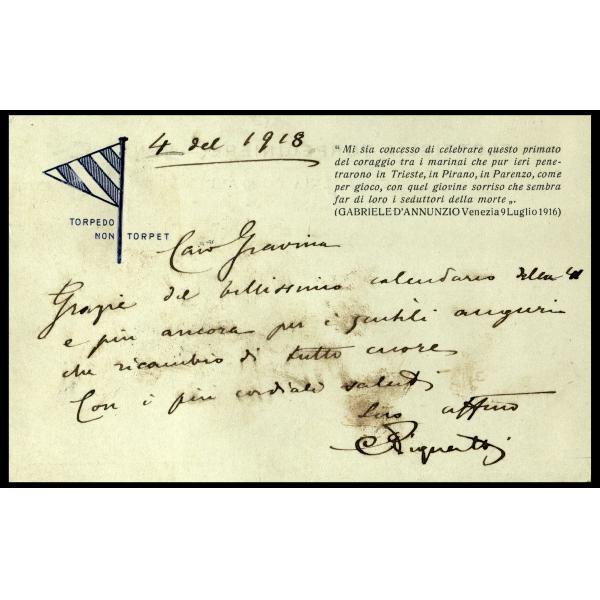 4 del 1918
„ Mi sia concesso di celebrare questo primato
del coraggio tra i marinai che pur ieri pene-
trarono in Trieste, in Pirano, in Parenzo, come
per gioco, con quel giovine sorriso che sembra
far di loro i seduttori della morte „.
(GABRIELE D'ANNUNZIO Venezia 9 Luglio 1916)
TORPEDO
NON TORPET
Caro Gravina
Grazie del bellissimo calendario della
e più ancora per i gentili auguri
che ricambio di tutto cuore
Con i più cordiali saluti
Suo affmo